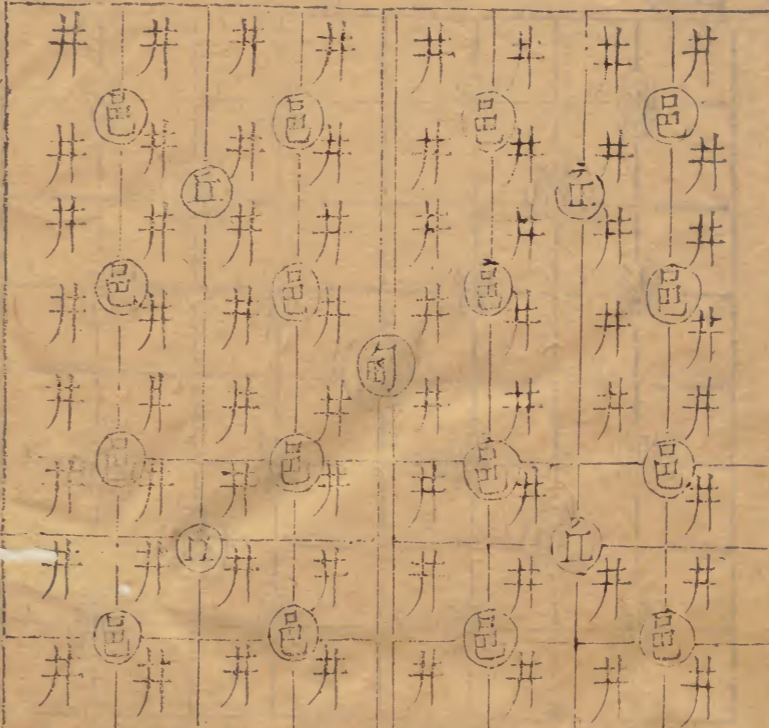 井 井 井 井 井 井 井 井
邑 邑 邑 邑
井 井 井 井 井 井 井 井
丘 丘
井 井 井 井 井 井 井 井
邑 邑 邑 邑
井 井 井 井 井 井 井 井
甸
井 井 井 井 井 井 井 井
邑 邑 邑 邑
井 井 井 井 井 井 井
丘 丘
井 井 井 井 井 井 井 井
邑 邑 邑 邑
井 井 井 井 井 井 井 井